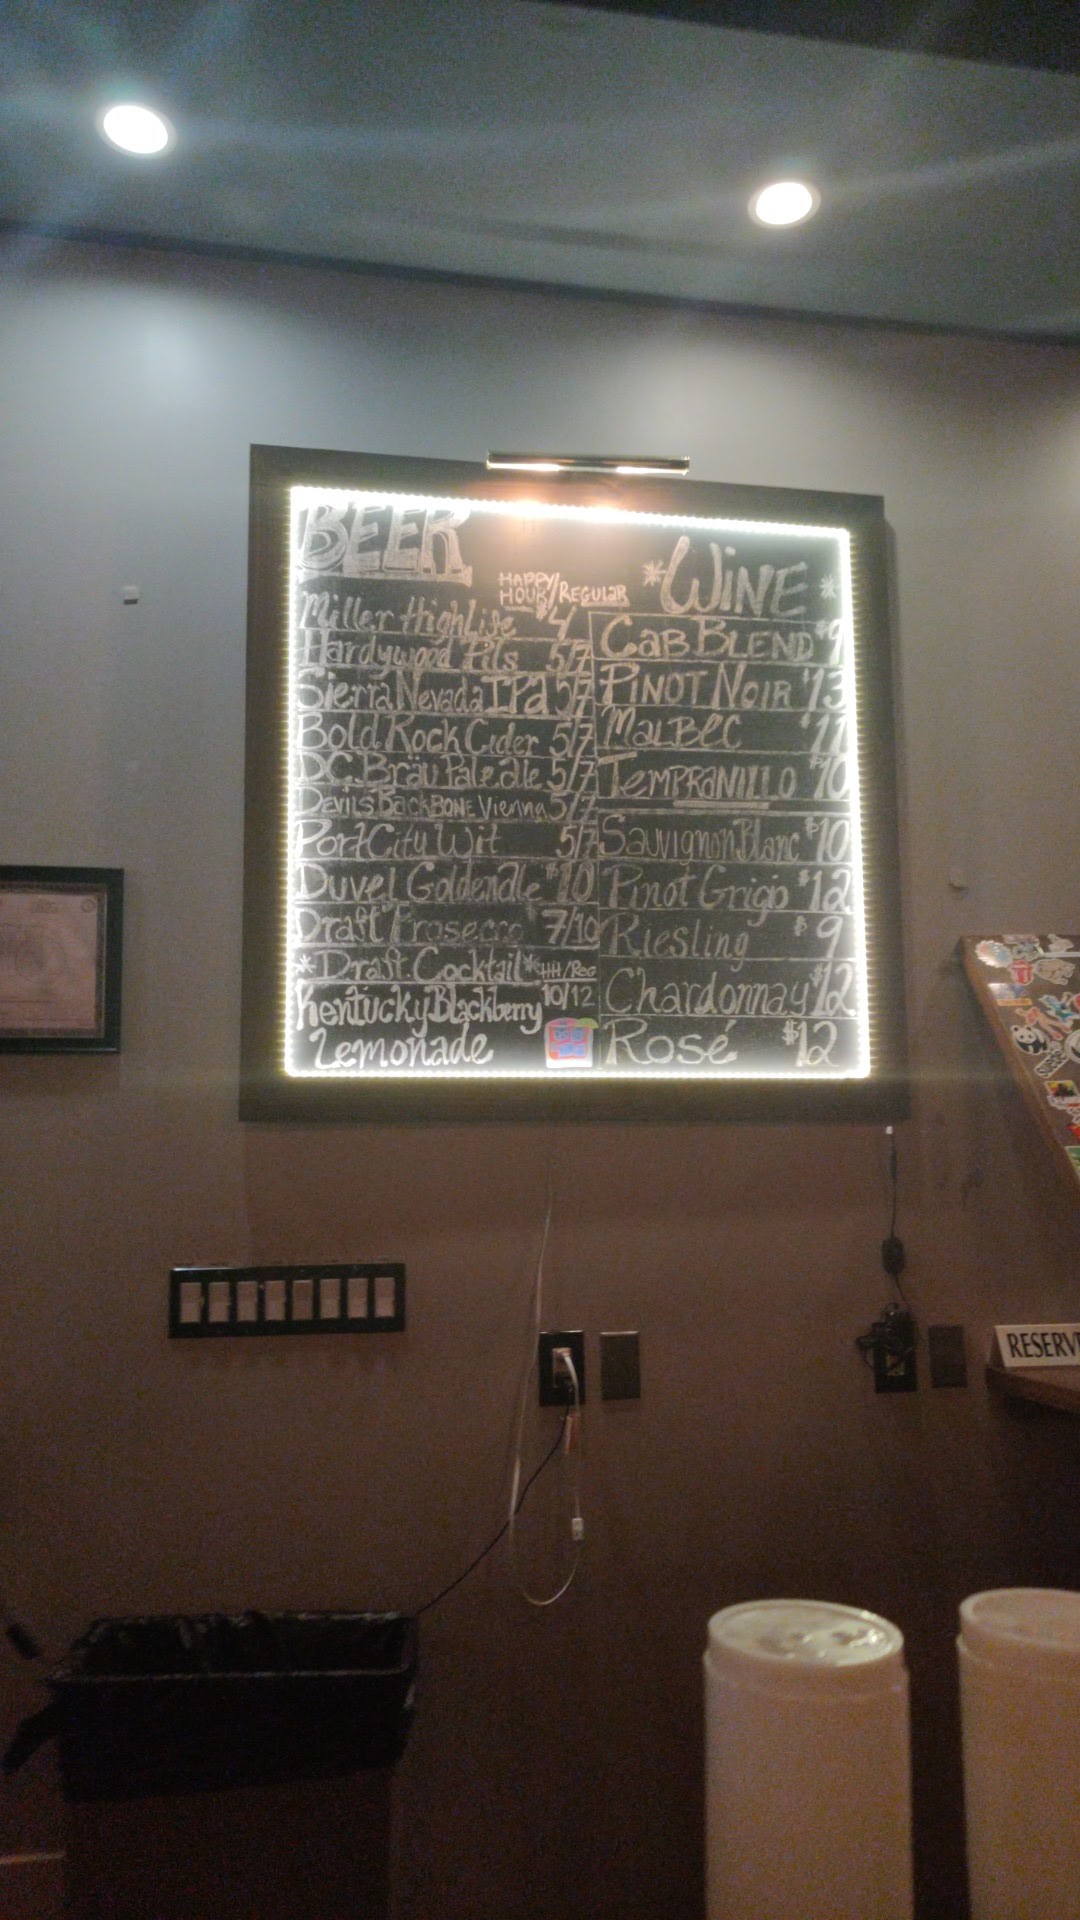 BEER
HAPPY HOUR/REGULAR
Miller High Life $4
Hardywood Pils 5/7
Sierra Nevada IPA 5/7
Bold Rock Cider 5/7
DC Bräu Pale ale 5/7
Devils BackBONE Vienna 5/7
Port City Wit 5/7
Duvel Golden ale $10
Draft Prosecco 7/10
*Draft Cocktail* HH/Reg
Kentucky Blackberry 10/12
Lemonade
*WINE*
CAB BLEND $9
PINOT NOIR $13
MALBEC $11
TEMPRANILLO $10
Sauvignon Blanc $10
Pinot Grigio $12
Riesling $9
Chardonnay $12
Rosé $12
RESERVE